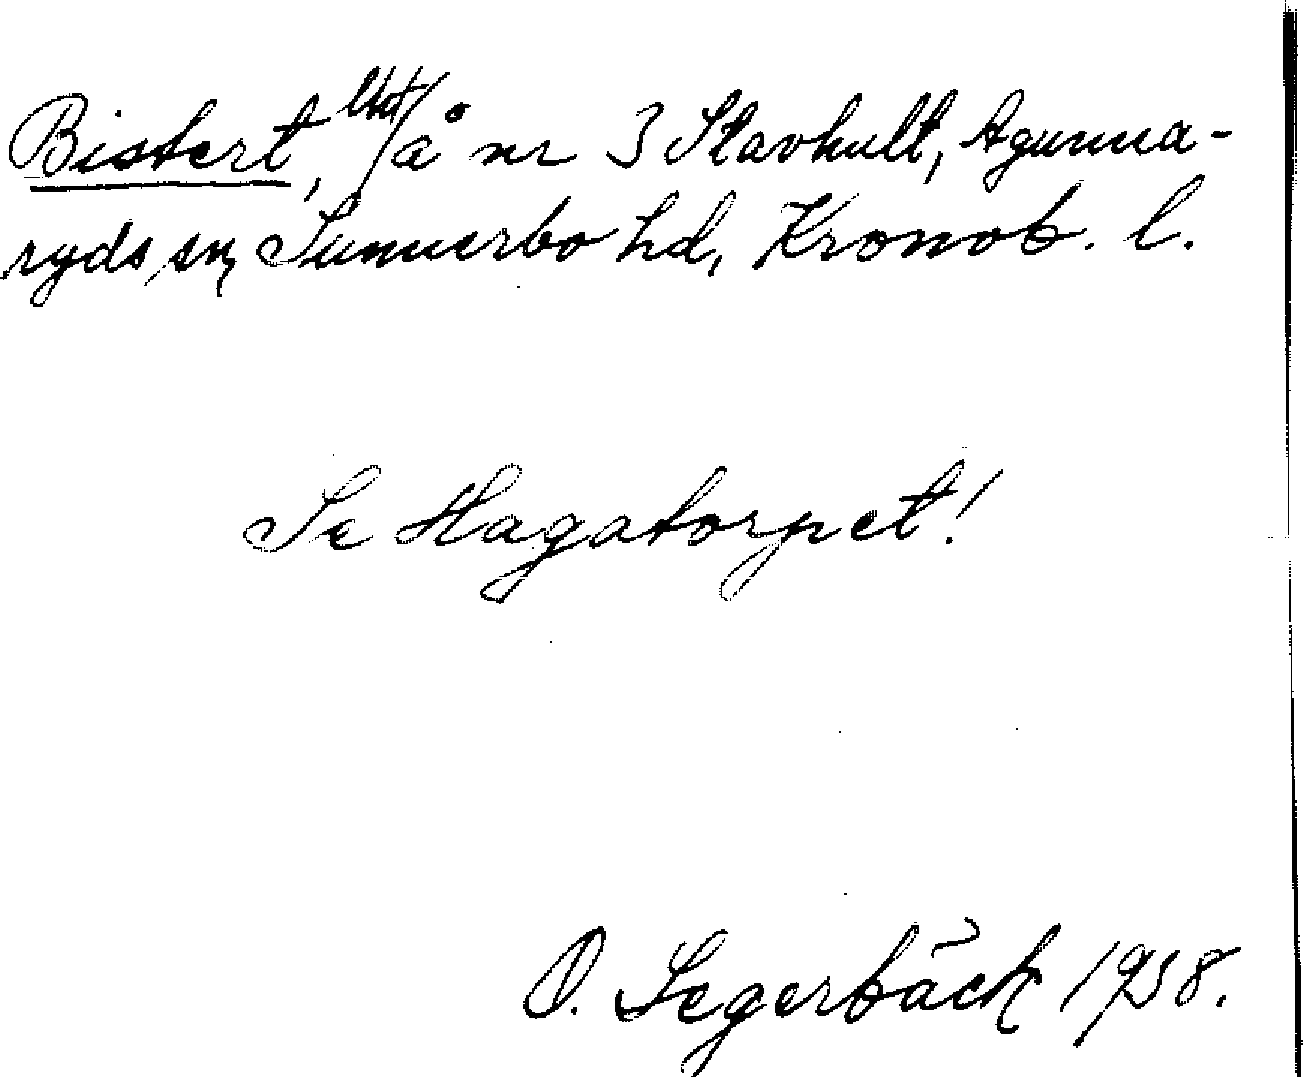 Bistert, å nr 3 Stavhult, Agunna-
ryds sn, Sunnerbo hd, Kronob. l.
Se Hagatorpet!
O. Segerbäck 1958.